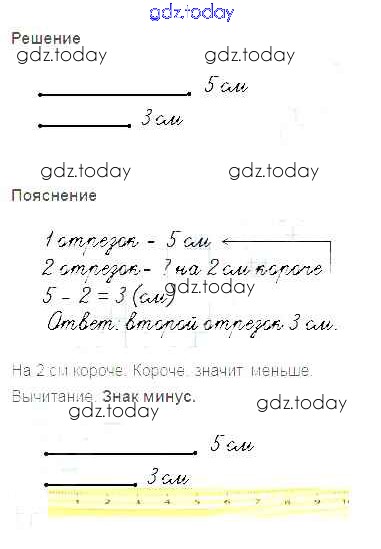 gdz.today
Решение
gdz.today gdz.today
5 см
3 см
gdz.today gdz.today
Пояснение
1 отрезок - 5 см
2 отрезок - ? на 2 см короче
gdz.today
5 - 2 = 3 (см)
Ответ: второй отрезок 3 см.
На 2 см короче. Короче, значит меньше.
Вычитание. Знак минус.
gdz.today gdz.today
5 см
3 см
1 2 3 4 5 6 7 8 9
gdz.today gdz.today